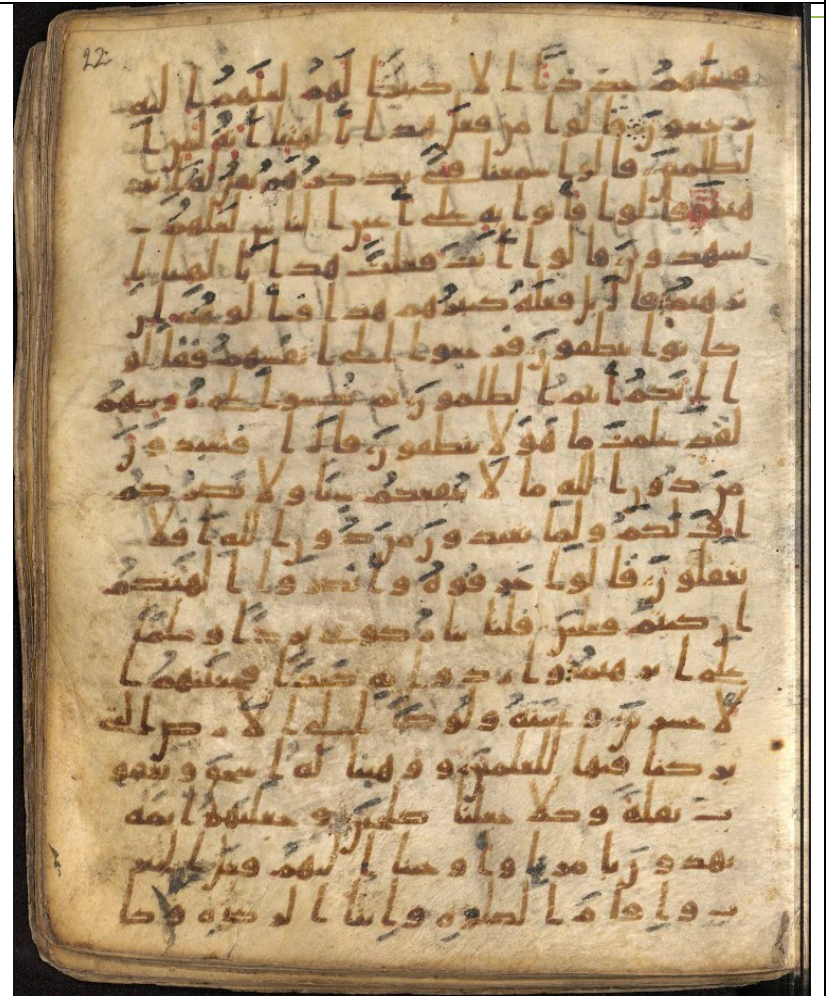 22
فجعلهم جذذا الا كبيرا لهم لعلهم اليه
يرجعون قالوا من فعل هذا بالهتنا انه لمن ا
لظلمين قالوا سمعنا فتى يذكرهم يقال له ابر
هيم قالوا فاتوا به على اعين الناس لعلهم
يشهدون قالوا انت فعلت هذا بالهتنا يا
برهيم قال بل فعله كبيرهم هذا فسلوهم ان
كانوا ينطقون فرجعوا الى انفسهم فقالو
ا انكم انتم الظلمون ثم نكسوا على روسهم
لقد علمت ما هولا ينطقون قال ا فتعبدون
من دون الله ما لا ينفعكم شيا ولا يضركم
اف لكم ولما تعبدون من دون الله افلا
تعقلون قالوا حرقوه وانصروا الهتكم
ان كنتم فعلين قلنا ينار كوني بردا وسلما
على ابرهيم وارادوا به كيدا فجعلنهم ا
لاخسرين ونجينه ولوطا الى الارض التي
بركنا فيها للعلمين ووهبنا له اسحق ويعقو
ب نفلة وكلا جعلنا صلحين وجعلنهم ائمة
يهدون بامرنا واوحينا اليهم فعل الخير
ت واقام الصلوة وايتا الزكوة وكا